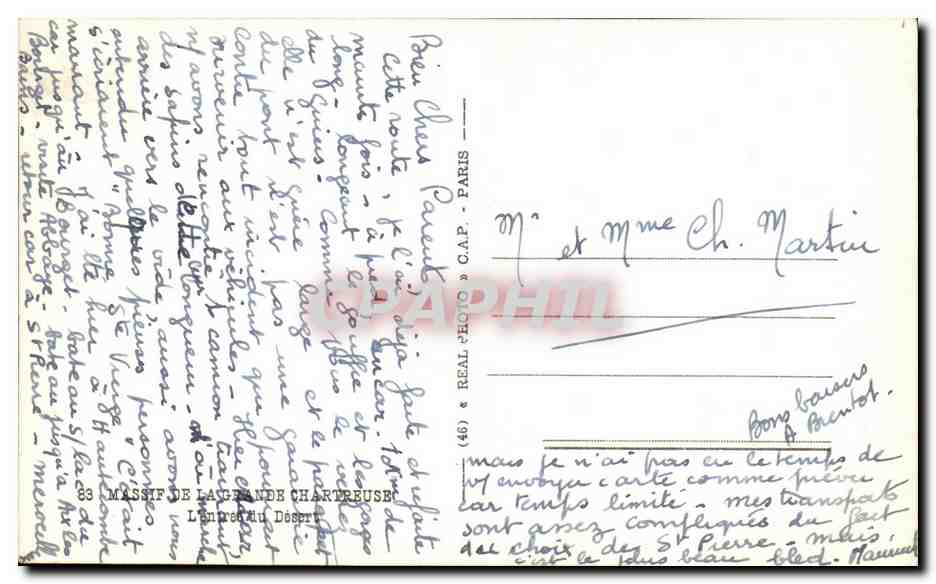 Bien Chers Parents,
Cette route, je l'ai déjà faite et refaite
maintes fois, à pied, en car. 1 Km de
long - longeant le gouffre et les gorges
du Guiers. Comme vous le voyez
elle n'est guère large et le parapet
du pont n'est pas une garantie
contre tout incident qui pourrait
survenir aux véhicules - Hier en car,
n/ avons rencontré 1 camion tirant
des sapins de cette longueur - d'où marche
arrière vers le vide, aussi avons nous
entendu quelques pieuses personnes
s'écriaient "Bonne Ste Vierge", c'était
marrant J'ai été hier à Hautecombe
car jusqu'au Bourget - bateau s/ lac du
Bourget - visite Abbaye - bateau jusqu'à Aix les
Bains - retour car à St Pierre - merveill
83 MASSIF DE LA GRANDE CHARTREUSE
L'entrée du Désert
(46) « REAL PHOTO » C.A.P. - PARIS
CPAPHIL
Mr et Mme Ch. Martin
Bons baisers
A Bientôt.
mais je n'ai pas eu le temps de
v/ envoyer carte comme prévu
car temps limité - mes transports
sont assez compliqués du fait
du choix de St Pierre - mais,
c'est le plus beau bled -